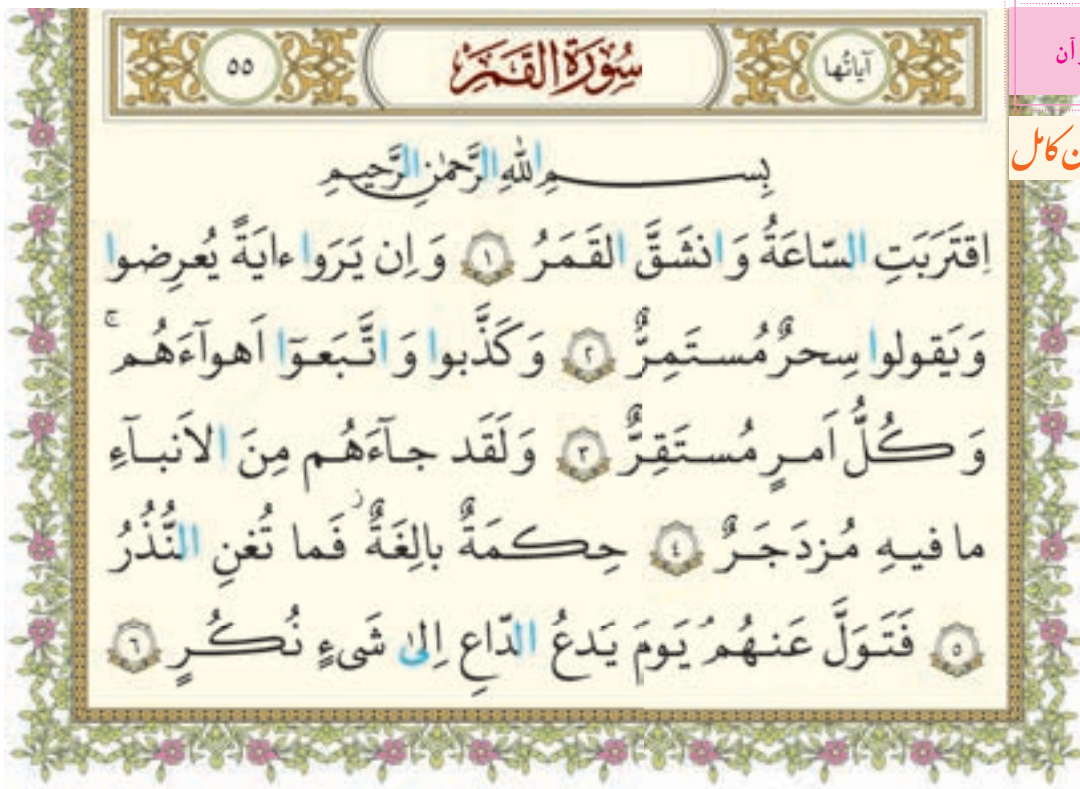 آیاتُها سُوْرَةُ الْقَمَرِ ٥٥
بِسمِ اللّٰهِ الرَّحمٰنِ الرَّحیمِ
اِقتَرَبَتِ السّاعَةُ وَ انشَقَّ القَمَرُ ١ وَ اِن یَرَوا ءایَةً یُعرِضوا
وَ یَقولوا سِحرٌ مُستَمِرٌّ ٢ وَ کَذَّبوا وَ اتَّبَعوٓا اَهوآءَهُم ۚ
وَ کُلُّ اَمرٍ مُستَقِرٌّ ٣ وَ لَقَد جآءَهُم مِنَ الاَنبآءِ
ما فیهِ مُزدَجَرٌ ٤ حِکمَةٌ بالِغَةٌ ۖ فَما تُغنِ النُّذُرُ
٥ فَتَوَلَّ عَنهُم یَومَ یَدعُ الدّاعِ اِلیٰ شَیءٍ نُکُرٍ ٦
کامل